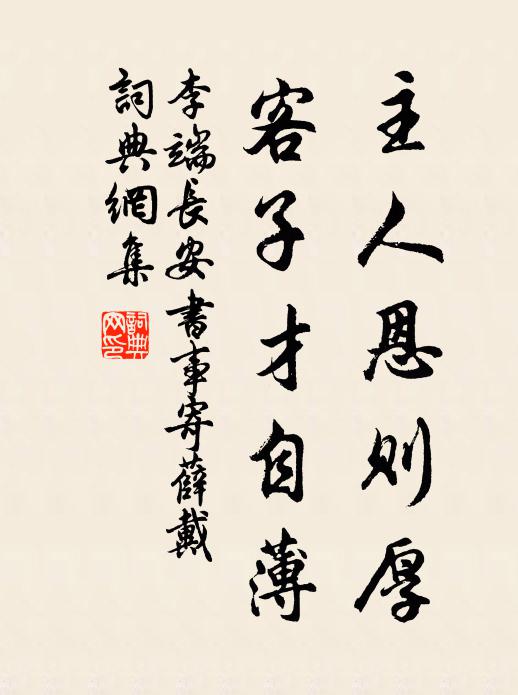 主人恩则厚
客子才自薄
李端長安書事寄薛戴
詞典網集
詞典网印